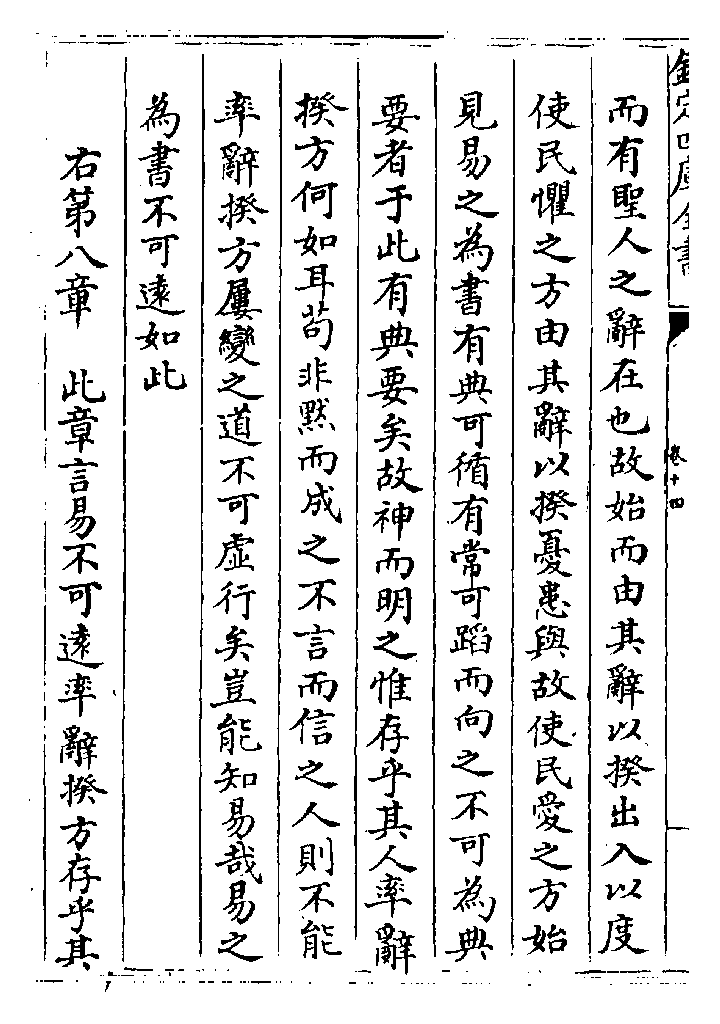 欽定四庫全書
卷十四
而有聖人之辭在也故始而由其辭以揆出入以度
使民懼之方由其辭以揆憂患與故使民愛之方始
見易之為書有典可循有常可蹈而向之不可為典
要者于此有典要矣故神而明之惟存乎其人率辭
揆方何如耳苟非黙而成之不言而信之人則不能
率辭揆方屢變之道不可虛行矣豈能知易哉易之
為書不可遠如此
右第八章　此章言易不可遠率辭揆方存乎其